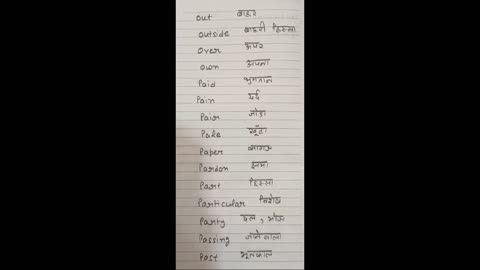 out बाहर
outside बाहरी हिस्सा
Over ऊपर
own अपना
Paid भुगतान
Pain दर्द
Pair जोड़ा
Pale खूँटा
Paper कागज
Pardon क्षमा
Part हिस्सा
Particular विशेष
Party दल, भोज
Passing जाने वाला
Past भूतकाल